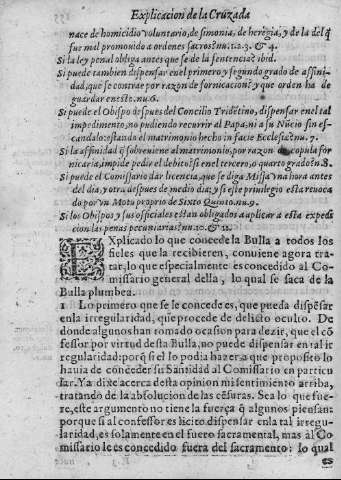 Explicacion de la Cruzada
nace de homicidio voluntario, de simonia, de heregia, y de la del q̃
fue mal promouido a ordenes sacros? nu. 1. 2. 3. & 4.
Si la ley penal obliga antes que se de la sentencia? ibid.
Si puede tambien dispensar en el primero y segundo grado de affini-
dad, que se contrae por razon de fornicacion? y que orden ha de
guardar en esto. nu. 6.
Si puede el Obispo despues del Concilio Tridẽtino, dispensar en el tal
impedimento, no pudiendo recurrir al Papa, ni a su Nũcio sin es-
cãdalo: estando el matrimonio hecho in facie Ecclesiæ? nu. 7.
Si la affinidad q̃ sobreuiene al matrimonio, por razon de copula for
nicaria, impide pedir el debito? si en el tercero, o quarto grado? n. 8.
Si puede el Comissario dar licencia, que se diga Missa vna hora antes
del dia, y otra despues de medio dia; y si este priuilegio esta reuoca
do por vn Motu proprio de Sixto Quinto. nu. 9.
Si los Obispos y sus officiales estan obligados a aplicar a esta expedi
cion las penas pecuniarias? nu. 10. & 11.
EXplicado lo que concede la Bulla a todos los
fieles que la recibieren, conuiene agora tra-
tar, lo que especialmente es concedido al Co-
missario general della, lo qual se saca de la
Bulla plumbea.
1 Lo primero que se le concede es, que pueda dispẽsar
en la irregularidad, que procede de delicto oculto. De
donde algunos han tomado ocasion para dezir, que el cõ
fessor por virtud desta Bulla, no puede dispensar en tal ir
regularidad: porq̃ si el lo podia hazer a que proposito lo
hauia de conceder su Santidad al Comissario en particu
lar. Ya dixe acerca desta opinion mi sentimiento arriba,
tratando de la absolucion de las cẽsuras. Sea lo que fue-
re, este argumento no tiene la fuerça q̃ algunos piensan:
porque si al confessor es licito dispensar en la tal irregu-
laridad, es solamente en el fuero sacramental, mas al Co
missario le es concedido fuera del sacramento: lo qual
es